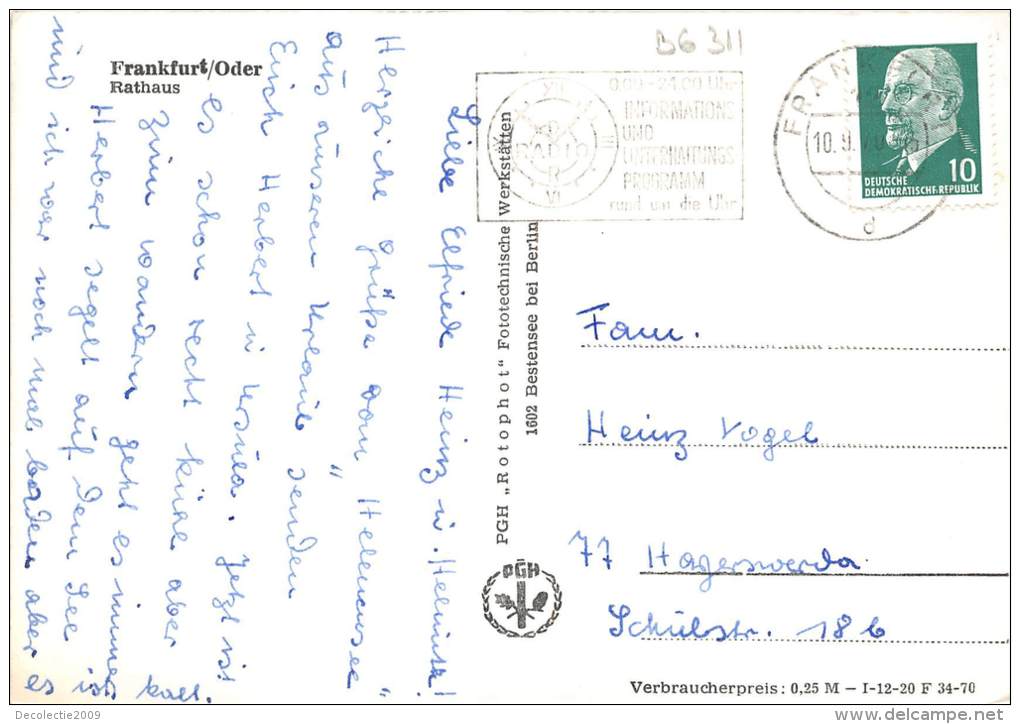 B6 311
Frankfurt/Oder
Rathaus
Liebe Elfriede Heinz u. Helmut!
Herzliche Grüße vom "Helenesee"
aus unseren Urlaub senden
Euch Herbert u Ursula. Jetzt ist
es schon recht kühl aber
zum wandern geht es immer
Herbert segelt auf dem See
und ich war noch mal baden aber es ist kalt.
PGH „Rotophot“ Fototechnische Werkstätten
1602 Bestensee bei Berlin
PGH
0.00-24.00 Uhr
INFORMATIONS
UND
UNTERHALTUNGS
PROGRAMM
rund um die Uhr
RADIO
FRANKFURT
10.9.70
d
10
DEUTSCHE
DEMOKRATISCHE REPUBLIK
Fam.
Heinz Vogel
77 Hoyerswerda
Schulstr. 18 b
Verbraucherpreis: 0,25 M – I-12-20 F 34-70
Decolectie2009
delcampe.net